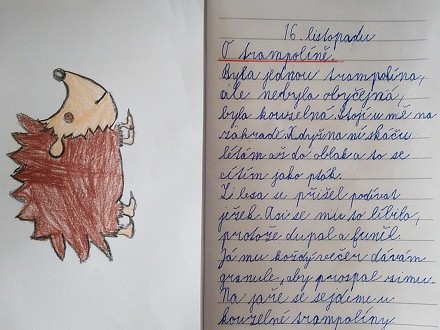 16. listopadu
O trampolíně.
Byla jednou trampolína,
ale nebyla obyčejná,
byla kouzelná. Stojí u mě na
zahradě. Když na ní skáču
létám až do oblak a to se
cítím jako pták.
Z lesa se přišel podívat
ježek. Asi se mu to líbilo,
protože dupal a funěl.
Já mu každý večer dávám
granule, aby prospal zimu.
Na jaře se sejdeme u
kouzelné trampolíny